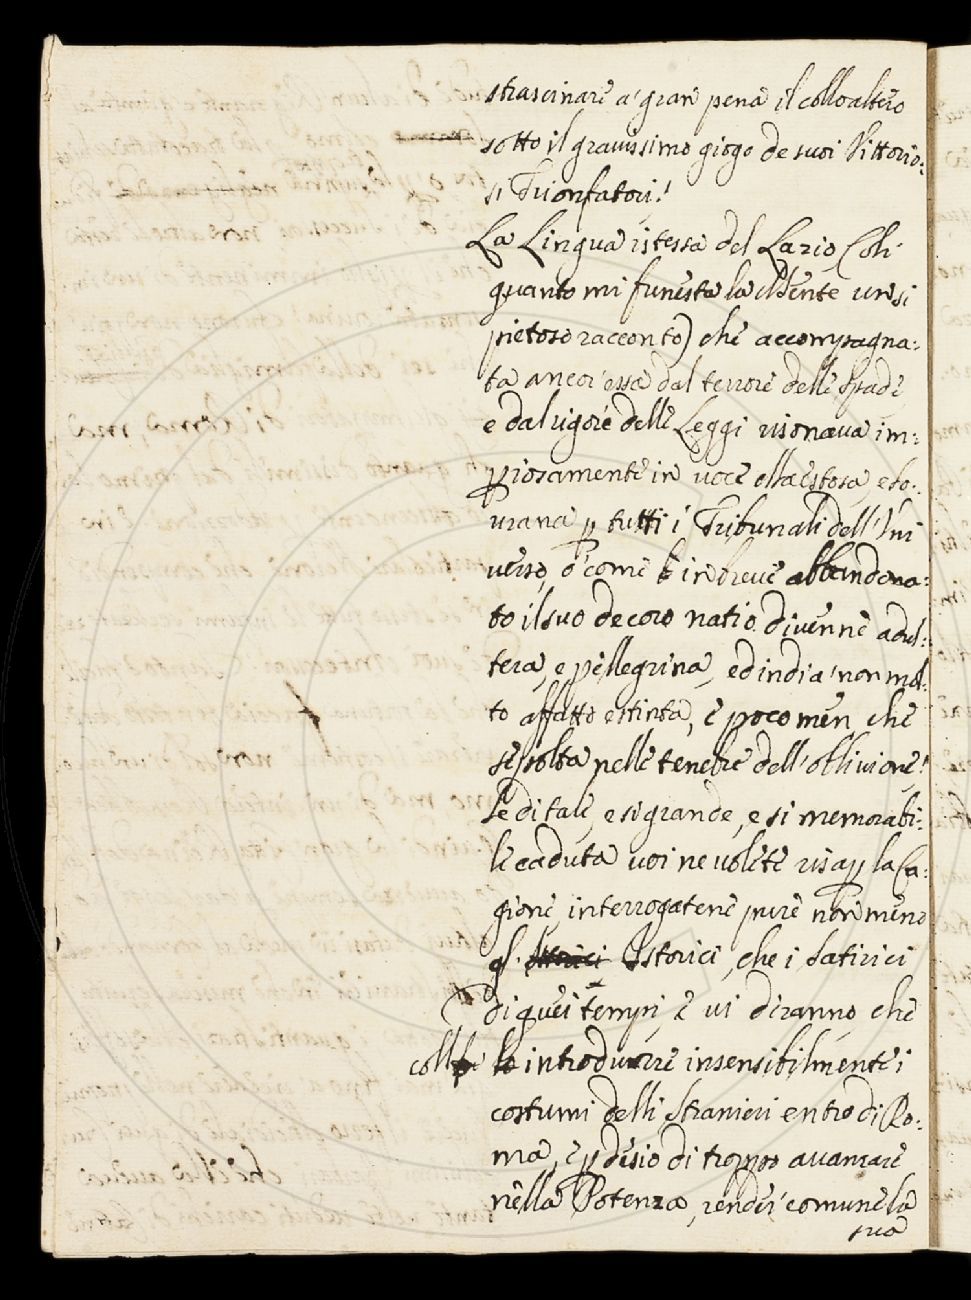 strascinare a' gran pena il collo altero
sotto il grauissimo giogo de suoi Vittorio:
si Trionfatori!
La Lingua istessa del Lazio (oh
quanto mi funesta la Mente un si
pietoso racconto) che accompagna:
ta ancor' essa dal terrore delle Spade
e dal rigore delle Leggi risonaua im:
piosamente in uoce Maestosa, e so:
urana p tutti i Tribunali dell'Uni
uerso, ó come in breue abbandona:
to il suo decoro natio diuenne adul:
tera, e pellegrina, ed indi a' non mol:
to affatto estinta, e poco men che
sepolta nelle tenebre dell'obliuione!
Se di tale, e si grande, e si memorabi:
le caduta uoi ne uolete risap la Ca:
gione, interrogatene pure non meno
gl' Istorici, che i Satirici
di quei tempi, e ui diranno che
coll' introdurre insensibilmente i
costumi delli Stranieri entro di Ro:
ma, e p desio di troppo auanzare
nella Potenza, render comune la
sua